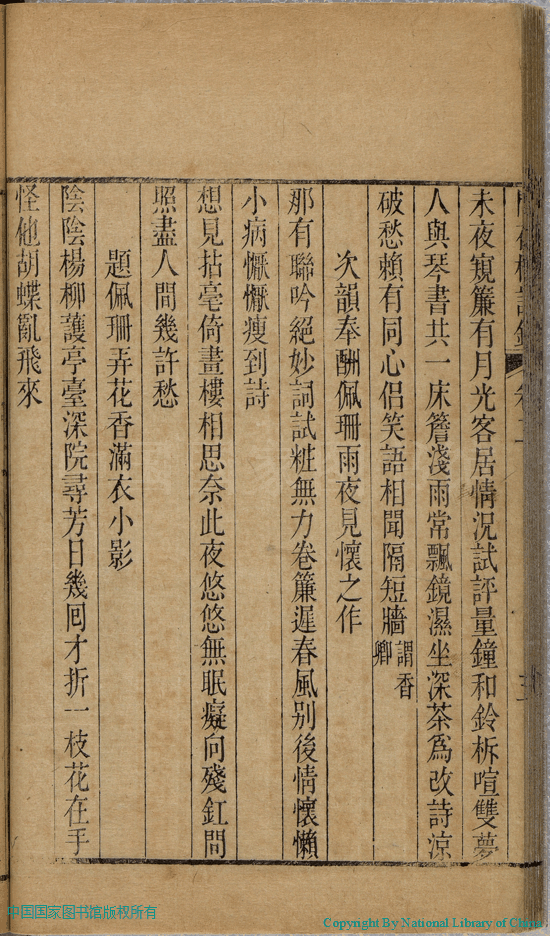 未夜窺簾有月光客居情況試評量鐘和鈴柝喧雙夢
人與琴書共一床簷淺雨常飄鏡濕坐深茶爲改詩涼
破愁賴有同心侶笑語相聞隔短牆謂香卿
次韻奉酬佩珊雨夜見懷之作
那有聯吟絕妙詞試粧無力卷簾遲春風别後情懷懶
小病懨懨瘦到詩
想見拈毫倚畫樓相思奈此夜悠悠無眠癡向殘釭問
照盡人間幾許愁
題佩珊弄花香滿衣小影
陰陰楊柳護亭臺深院尋芳日幾囘才折一枝花在手
怪他胡蝶亂飛來
中国国家图书馆版权所有
Copyright By National Library of China